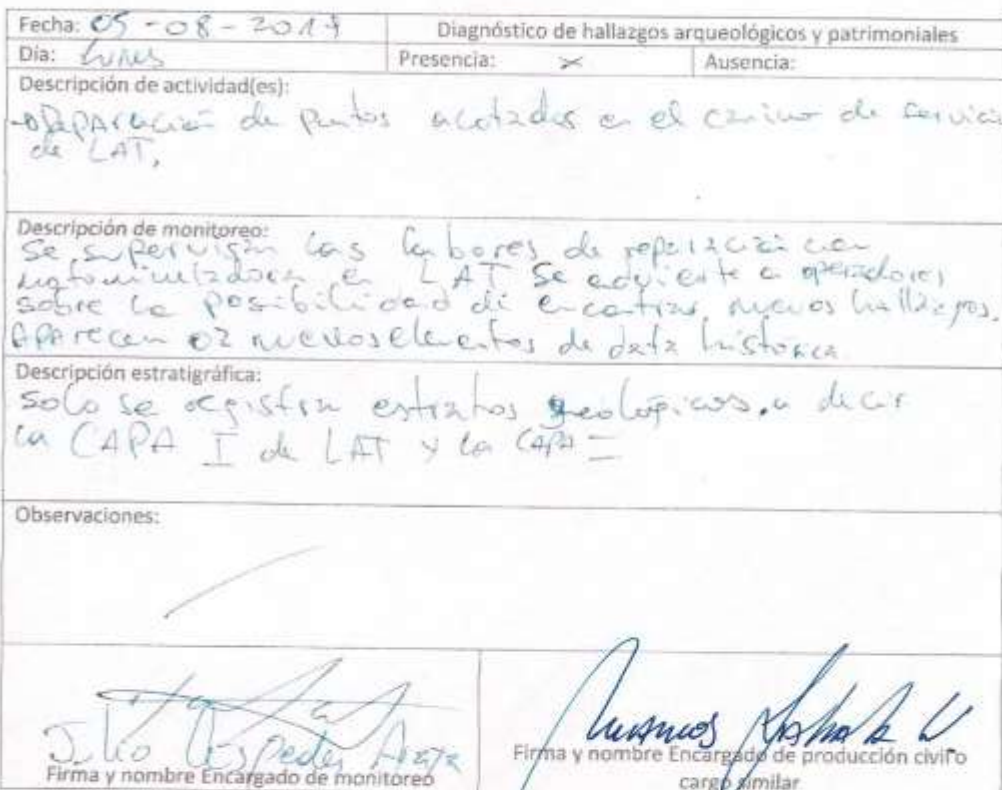 Fecha: 05-08-2019 Diagnóstico de hallazgos arqueológicos y patrimoniales
Día: Lunes Presencia: × Ausencia:
Descripción de actividad(es):
de puntos acotados en el camino de servicio
de LAT.
Descripción de monitoreo:
Se supervisan las labores de reparación con
en LAT se advierte a operadores
sobre la posibilidad de encontrar nuevos hallazgos.
Aparecen 02 nuevos elementos de data histórica
Descripción estratigráfica:
Solo se registra estratos geológicos, a decir
la CAPA I de LAT y la CAPA II
Observaciones:
Julio Araya
Firma y nombre Encargado de monitoreo
Firma y nombre Encargado de producción civil o
cargo similar